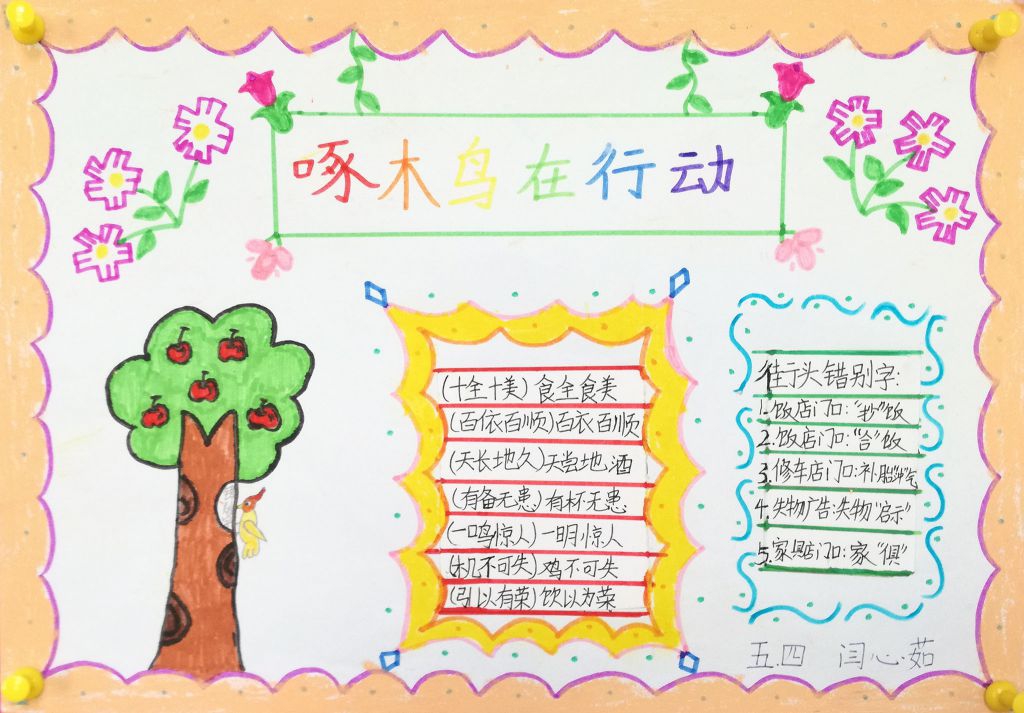 啄木鸟在行动
(十全十美) 食全食美
(百依百顺) 百衣百顺
(天长地久) 天尝地酒
(有备无患) 有杯无患
(一鸣惊人) 一明惊人
(机不可失) 鸡不可失
(引以有荣) 饮以为荣
街头错别字:
1.饭店门口:“抄”饭
2.饭店门口:“合”饭
3.修车店门口:补胎
4.失物广告:失物“启示”
5.家具店门口:家“俱”
五.四 闫心茹